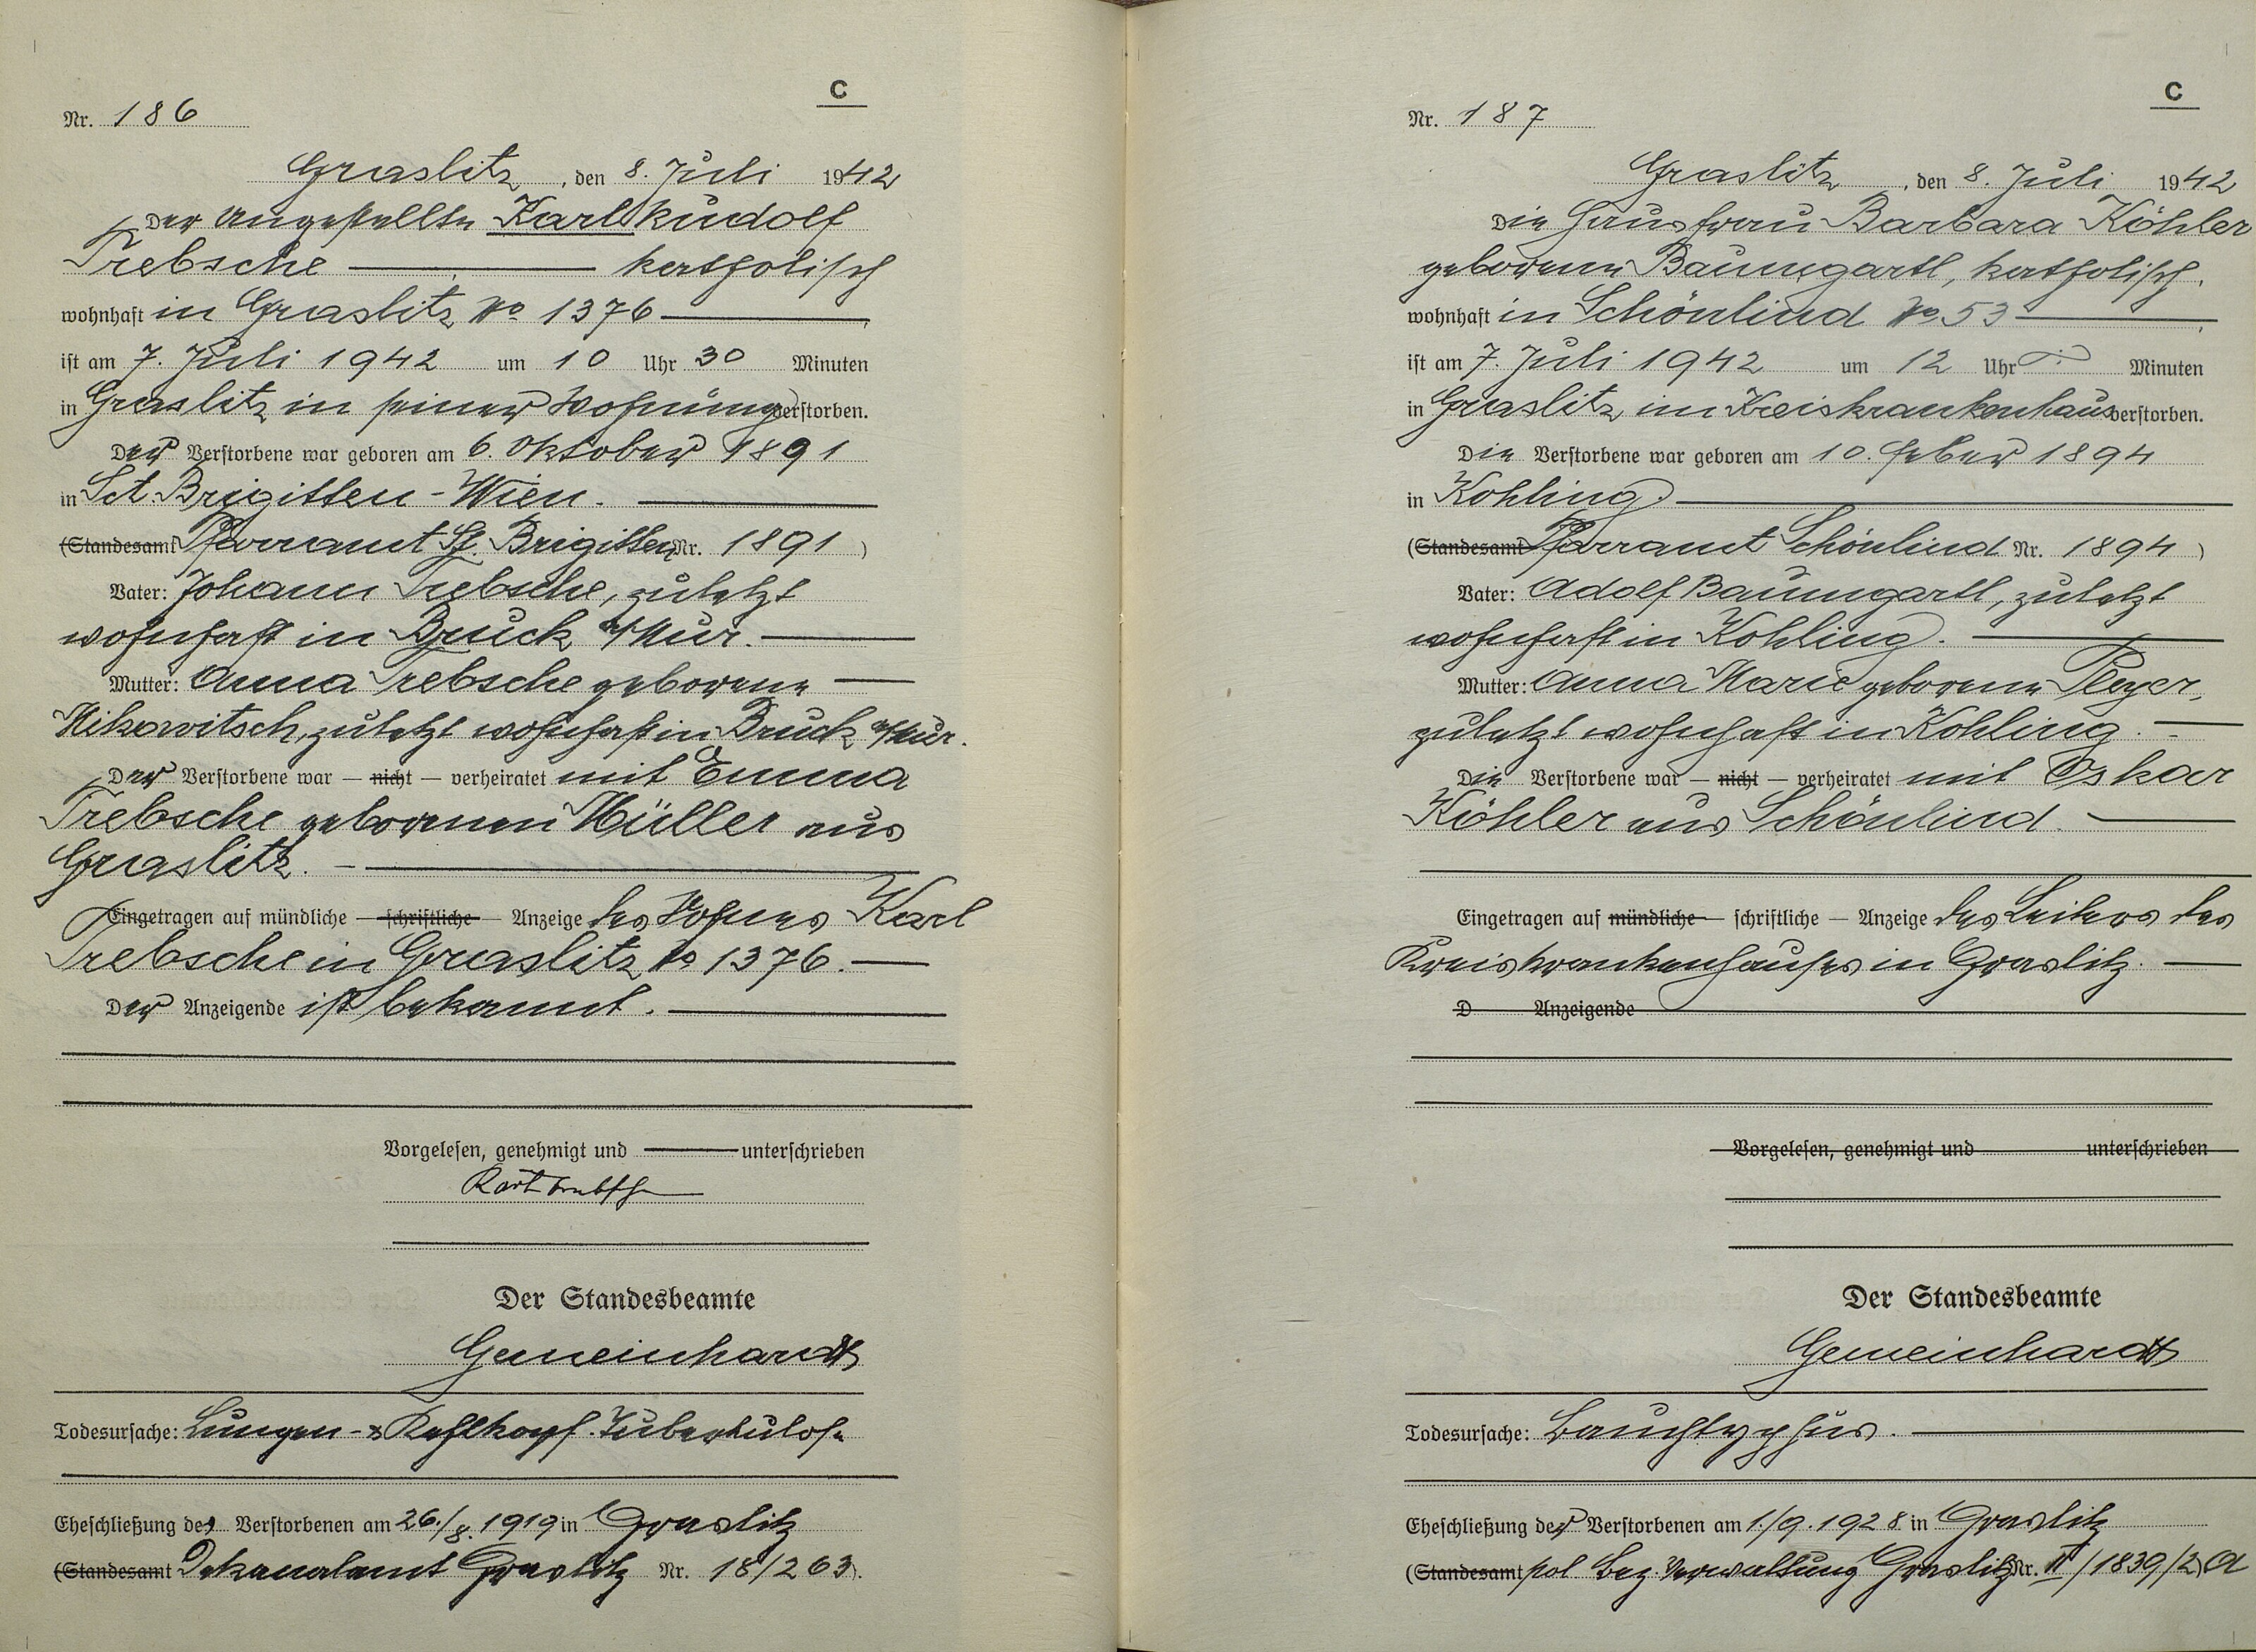 C
Nr. 186
Graslitz, den 8. Juli 1942
Der Angestellte Karl Rudolf
Trebsche — katholisch
wohnhaft in Graslitz No 1376
ist am 7. Juli 1942 um 10 Uhr 30 Minuten
in Graslitz in seiner Wohnung verstorben.
Der Verstorbene war geboren am 6. Oktober 1891
in Sct. Brigitten-Wien.
(Standesamt Pfarramt St. Brigitten Nr. 1891)
Vater: Johann Trebsche, zuletzt
wohnhaft in Bruck a/Mur.
Mutter: Anna Trebsche geborene
Mikowitsch, zuletzt wohnhaft in Bruck a/Mur.
Der Verstorbene war — nicht — verheiratet mit Emma
Trebsche geborenen Müller aus
Graslitz.
Eingetragen auf mündliche — schriftliche — Anzeige des Sohnes Karl
Trebsche in Graslitz No 1376.
Der Anzeigende ist bekannt.
Vorgelesen, genehmigt und unterschrieben
Karl Trebsche
Der Standesbeamte
Gemeinhardt
Todesursache: Lungen- & Kehlkopf-Tuberkulose
Eheschließung des Verstorbenen am 26./8. 1919 in Graslitz
(Standesamt Dekanalamt Graslitz Nr. 18/263).
C
Nr. 187
Graslitz, den 8. Juli 1942
Die Hausfrau Barbara Köhler
geborene Baumgartl, katholisch,
wohnhaft in Schönlind No 53
ist am 7. Juli 1942 um 12 Uhr Minuten
in Graslitz im Kreiskrankenhaus verstorben.
Die Verstorbene war geboren am 10. Feber 1894
in Kohling.
(Standesamt Pfarramt Schönlind Nr. 1894)
Vater: Adolf Baumgartl, zuletzt
wohnhaft in Kohling.
Mutter: Anna Marie geborene Pleyer,
zuletzt wohnhaft in Kohling.
Die Verstorbene war — nicht — verheiratet mit Oskar
Köhler aus Schönlind.
Eingetragen auf mündliche — schriftliche — Anzeige des Leiters des
Kreiskrankenhauses in Graslitz.
D Anzeigende
Vorgelesen, genehmigt und unterschrieben
Der Standesbeamte
Gemeinhardt
Todesursache: Bauchtyphus.
Eheschließung der Verstorbenen am 1./9. 1928 in Graslitz
(Standesamt pol. Bez. Verwaltung Graslitz Nr. II/1839/2) A